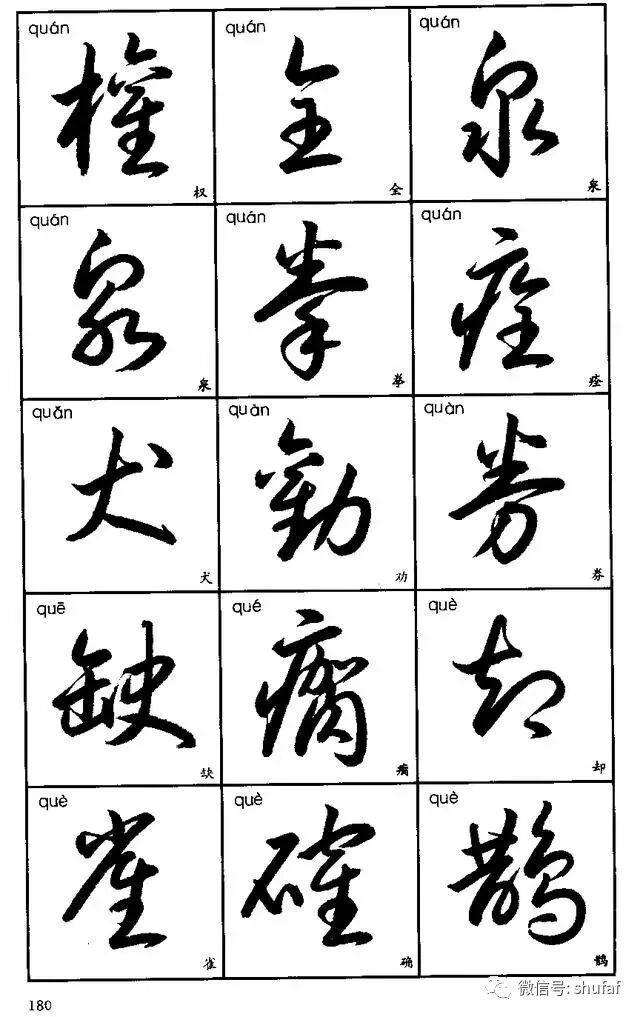 quán quán quán
權 全 泉
权 全 泉
quán quán quán
泉 拳 痊
泉 拳 痊
quǎn quàn quàn
犬 勸 券
犬 劝 券
quē qué què
缺 瘸 却
缺 瘸 却
què què què
雀 確 鹊
雀 确 鹊
180
微信号: shufaf